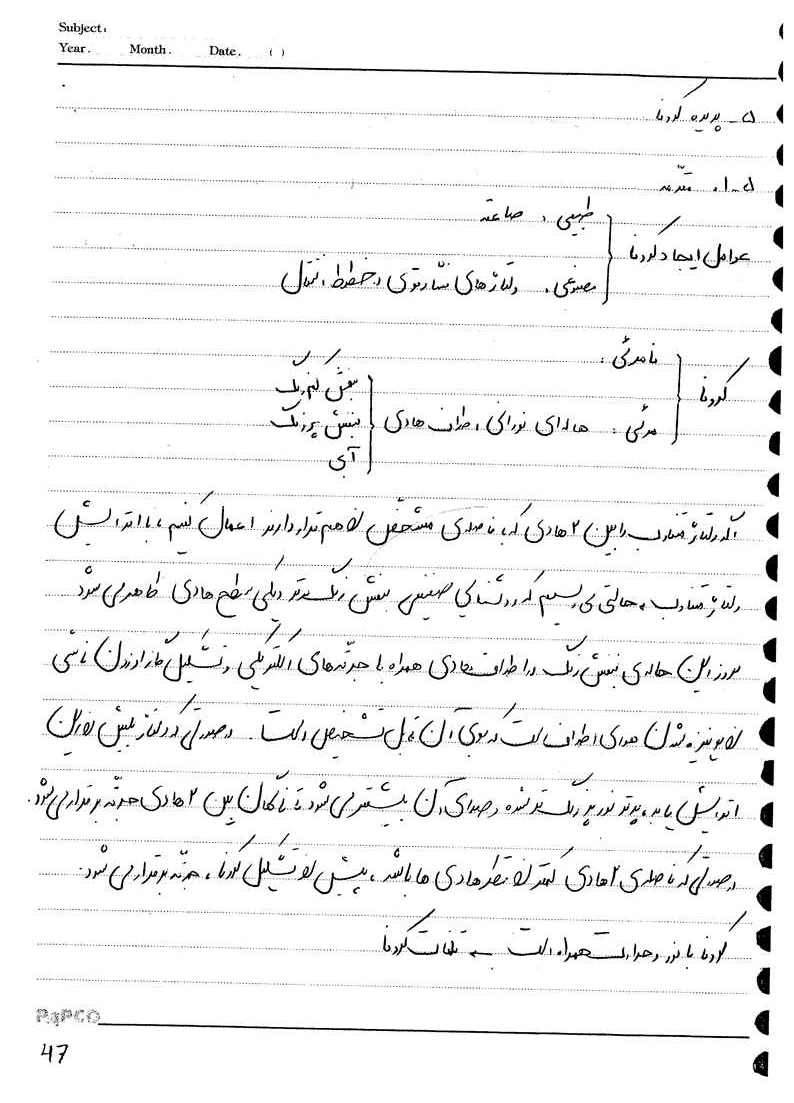 Subject:
Year. Month. Date. ( )
۵- پدیده کرونا
۵-۱. مقدمه
عوامل ایجاد کرونا
طبیعی: صاعقه
مصنوعی: ولتاژهای فشار قوی در خطوط انتقال
کرونا
نامرئی:
مرئی: هاله‌ای نورانی اطراف هادی
بنفش کم رنگ
بنفش پررنگ
آبی
اگر ولتاژ متناوب را بین ۲ هادی که با فاصله‌ی مشخص از هم قرار دارند اعمال کنیم، با افزایش
ولتاژ متناوب به حالتی می رسیم که روشنایی ضعیفی بنفش رنگ در سطح هادی ظاهر می شود
بروز این هاله‌ی بنفش رنگ در اطراف هادی همراه با جرقه‌های الکتریکی و تشکیل گاز ازن ناشی
از یونیزه شدن هوای اطراف است که بوی آن قابل تشخیص است. در صورتی که ولتاژ بیش از این
افزایش یابد، پرتو نور پررنگ تر شده و صدای آن بیشتر می شود تا ناگهان بین ۲ هادی جرقه برقرار می شود.
در صورتی که فاصله‌ی ۲ هادی کمتر از قطر هادی ها باشد، پیش از تشکیل کرونا، جرقه برقرار می شود.
کرونا با نور و حرارت همراه است ⇐ تلفات کرونا
PAPCO
47